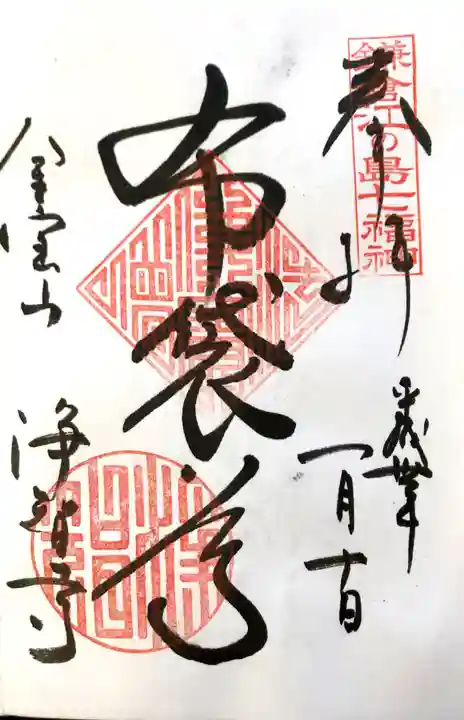 鎌倉江の島七福神
奉拝
平成卅年
一月十日
布袋尊
金宝山
浄智寺